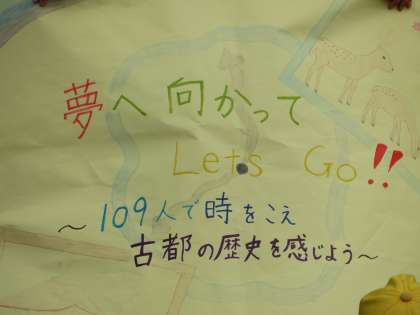 夢へ向かって
Lets Go!!
～109人で時をこえ
古都の歴史を感じよう～